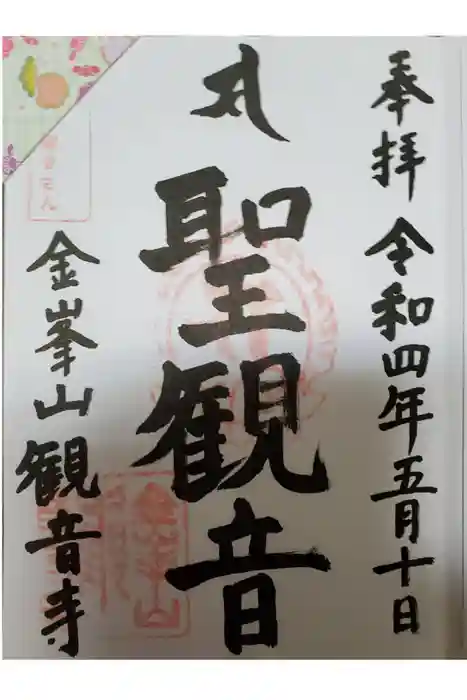 奉拝 令和四年五月十日
聖観音
金峯山観音寺